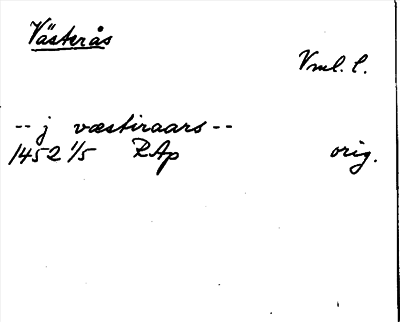 Västerås
Vml. l.
-- j væstiraars --
1452 1/5 RAp orig.